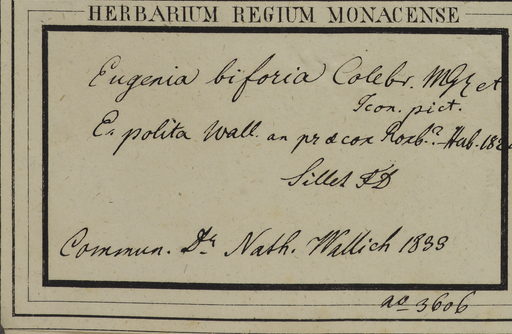 HERBARIUM REGIUM MONACENSE
Eugenia biforia Colebr. Mss et
Icon. pict.
E. polita Wall. an præcox Roxb.? Hab.
Sillet FD
Commun. Dr Nath. Wallich 1833
no 3606